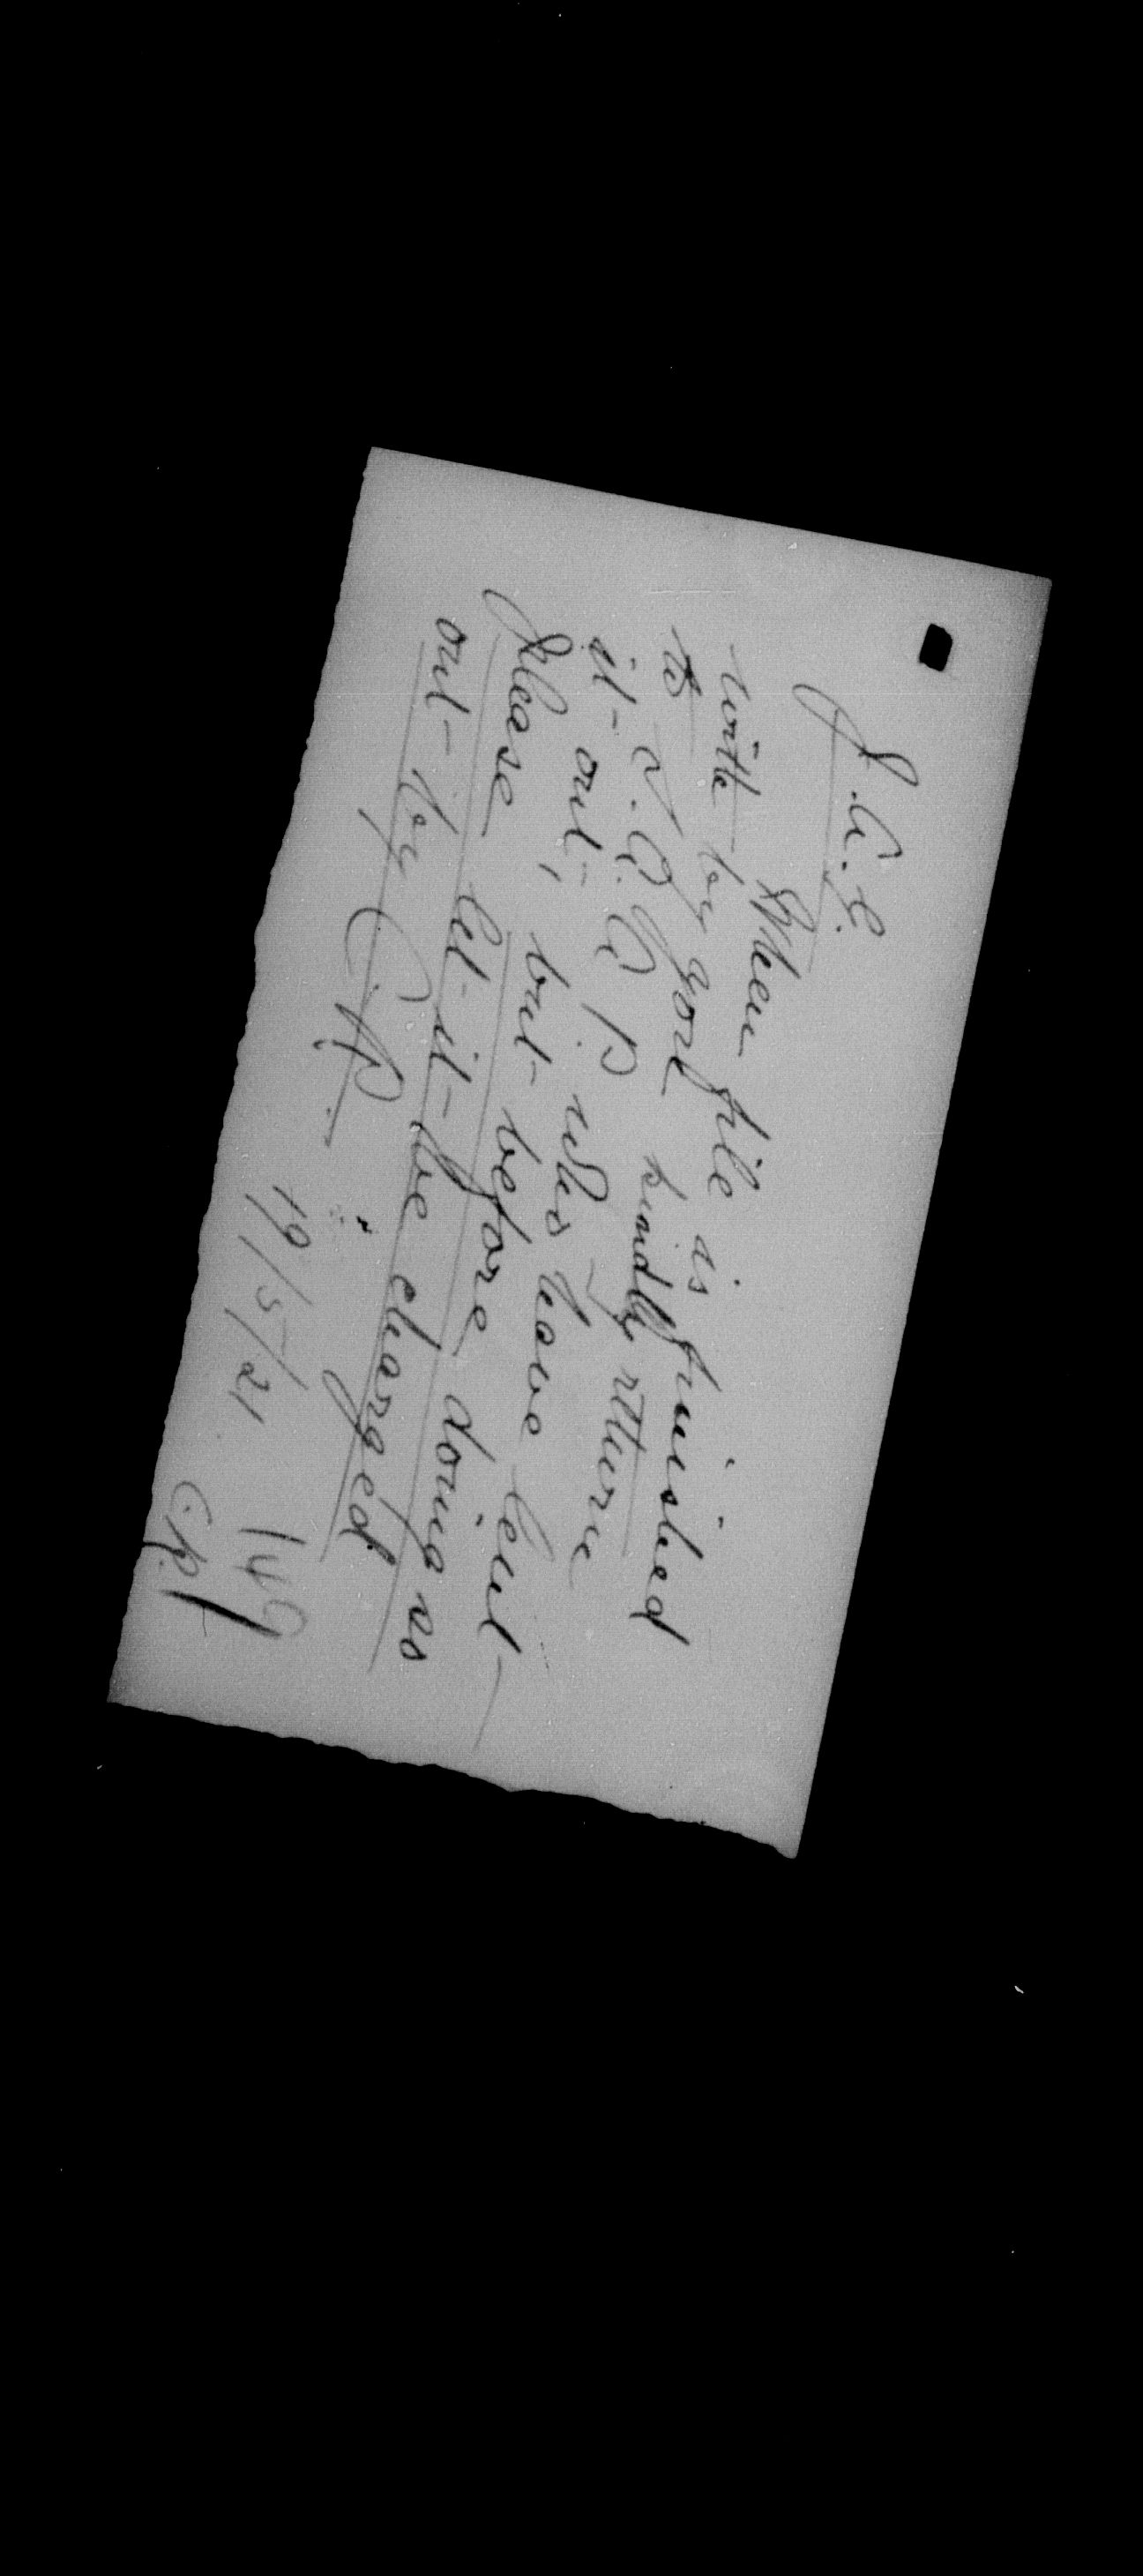 J.A.G.
When file is finished
with by you kindly return
to V.Q.O.P who have lent
it out, but before doing so
please let it be charged
out by C.R.
19/5/21 149
C.R.